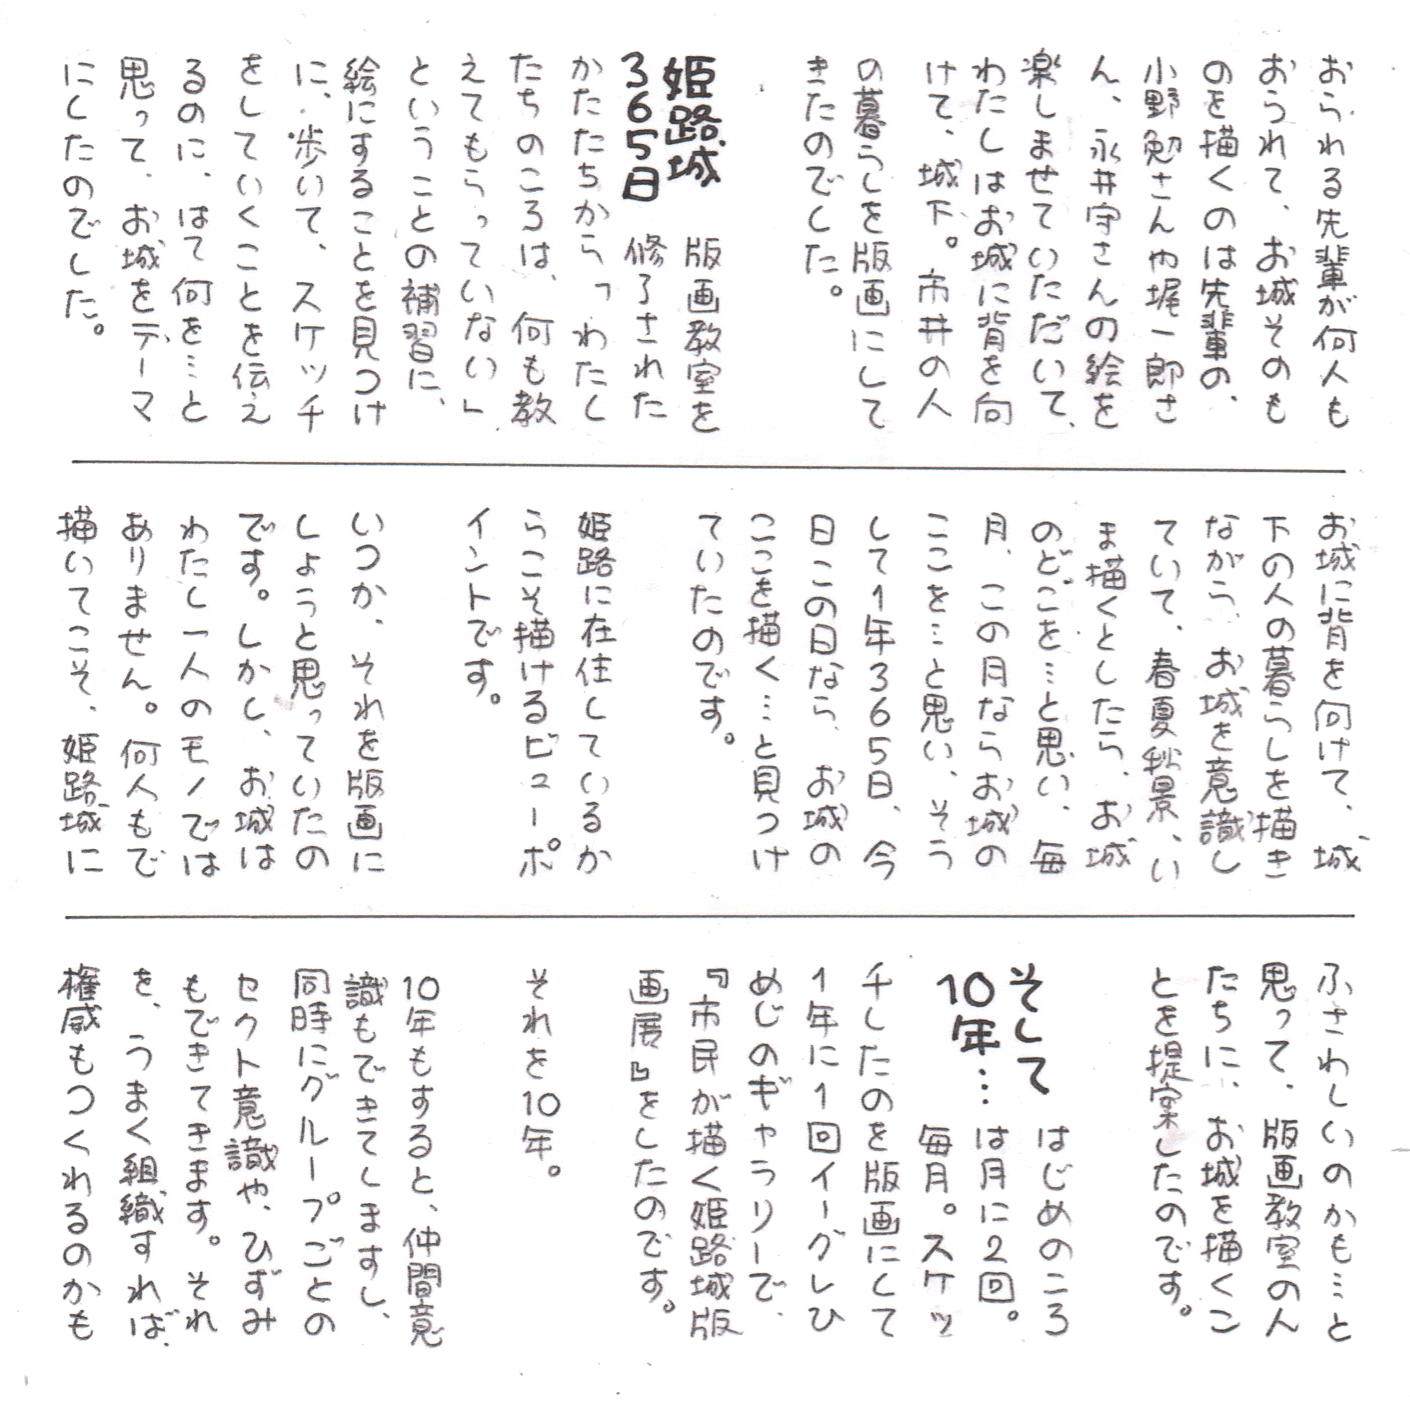 おられる先輩が何人も
おられて、お城そのも
のを描くのは先輩の、
小野勉さんや堀一郎さ
ん、永井守さんの絵を
楽しませていただいて、
わたしはお城に背を向
けて、城下。市井の人
の暮らしを版画にして
きたのでした。
姫路城
365日
版画教室を
修了された
かたたちから「わたし
たちのころは、何も教
えてもらっていない」
ということの補習に、
絵にすることを見つけ
に、歩いて、スケッチ
をしていくことを伝え
るのに、はて何を…と
思って、お城をテーマ
にしたのでした。
お城に背を向けて、城
下の人の暮らしを描き
ながら、お城を意識し
ていて、春夏秋景、い
ま描くとしたら、お城
のどこを…と思い、毎
月、この月ならお城の
ここを…と思い、そう
して1年365日、今
日この日なら、お城の
ここを描く…と見つけ
ていたのです。
姫路に在住しているか
らこそ描けるビューポ
イントです。
いつか、それを版画に
しようと思っていたの
です。しかし、お城は
わたし一人のモノでは
ありません。何人もで
描いてこそ、姫路城に
ふさわしいのかも…と
思って、版画教室のん
たちに、お城を描くこ
とを提案したのです。
そして
10年…
はじめのころ
は月に2回。
毎月。スケッ
チしたのを版画にして
1年に1回イーグレひ
めじのギャラリーで、
『市民が描く姫路城版
画展』をしたのです。
それを10年。
10年もすると、仲間意
識もできてしますし、
同時にグループごとの
セクト意識や、ひずみ
もできてきます。それ
を、うまく組織すれば、
権威もつくれるのかも